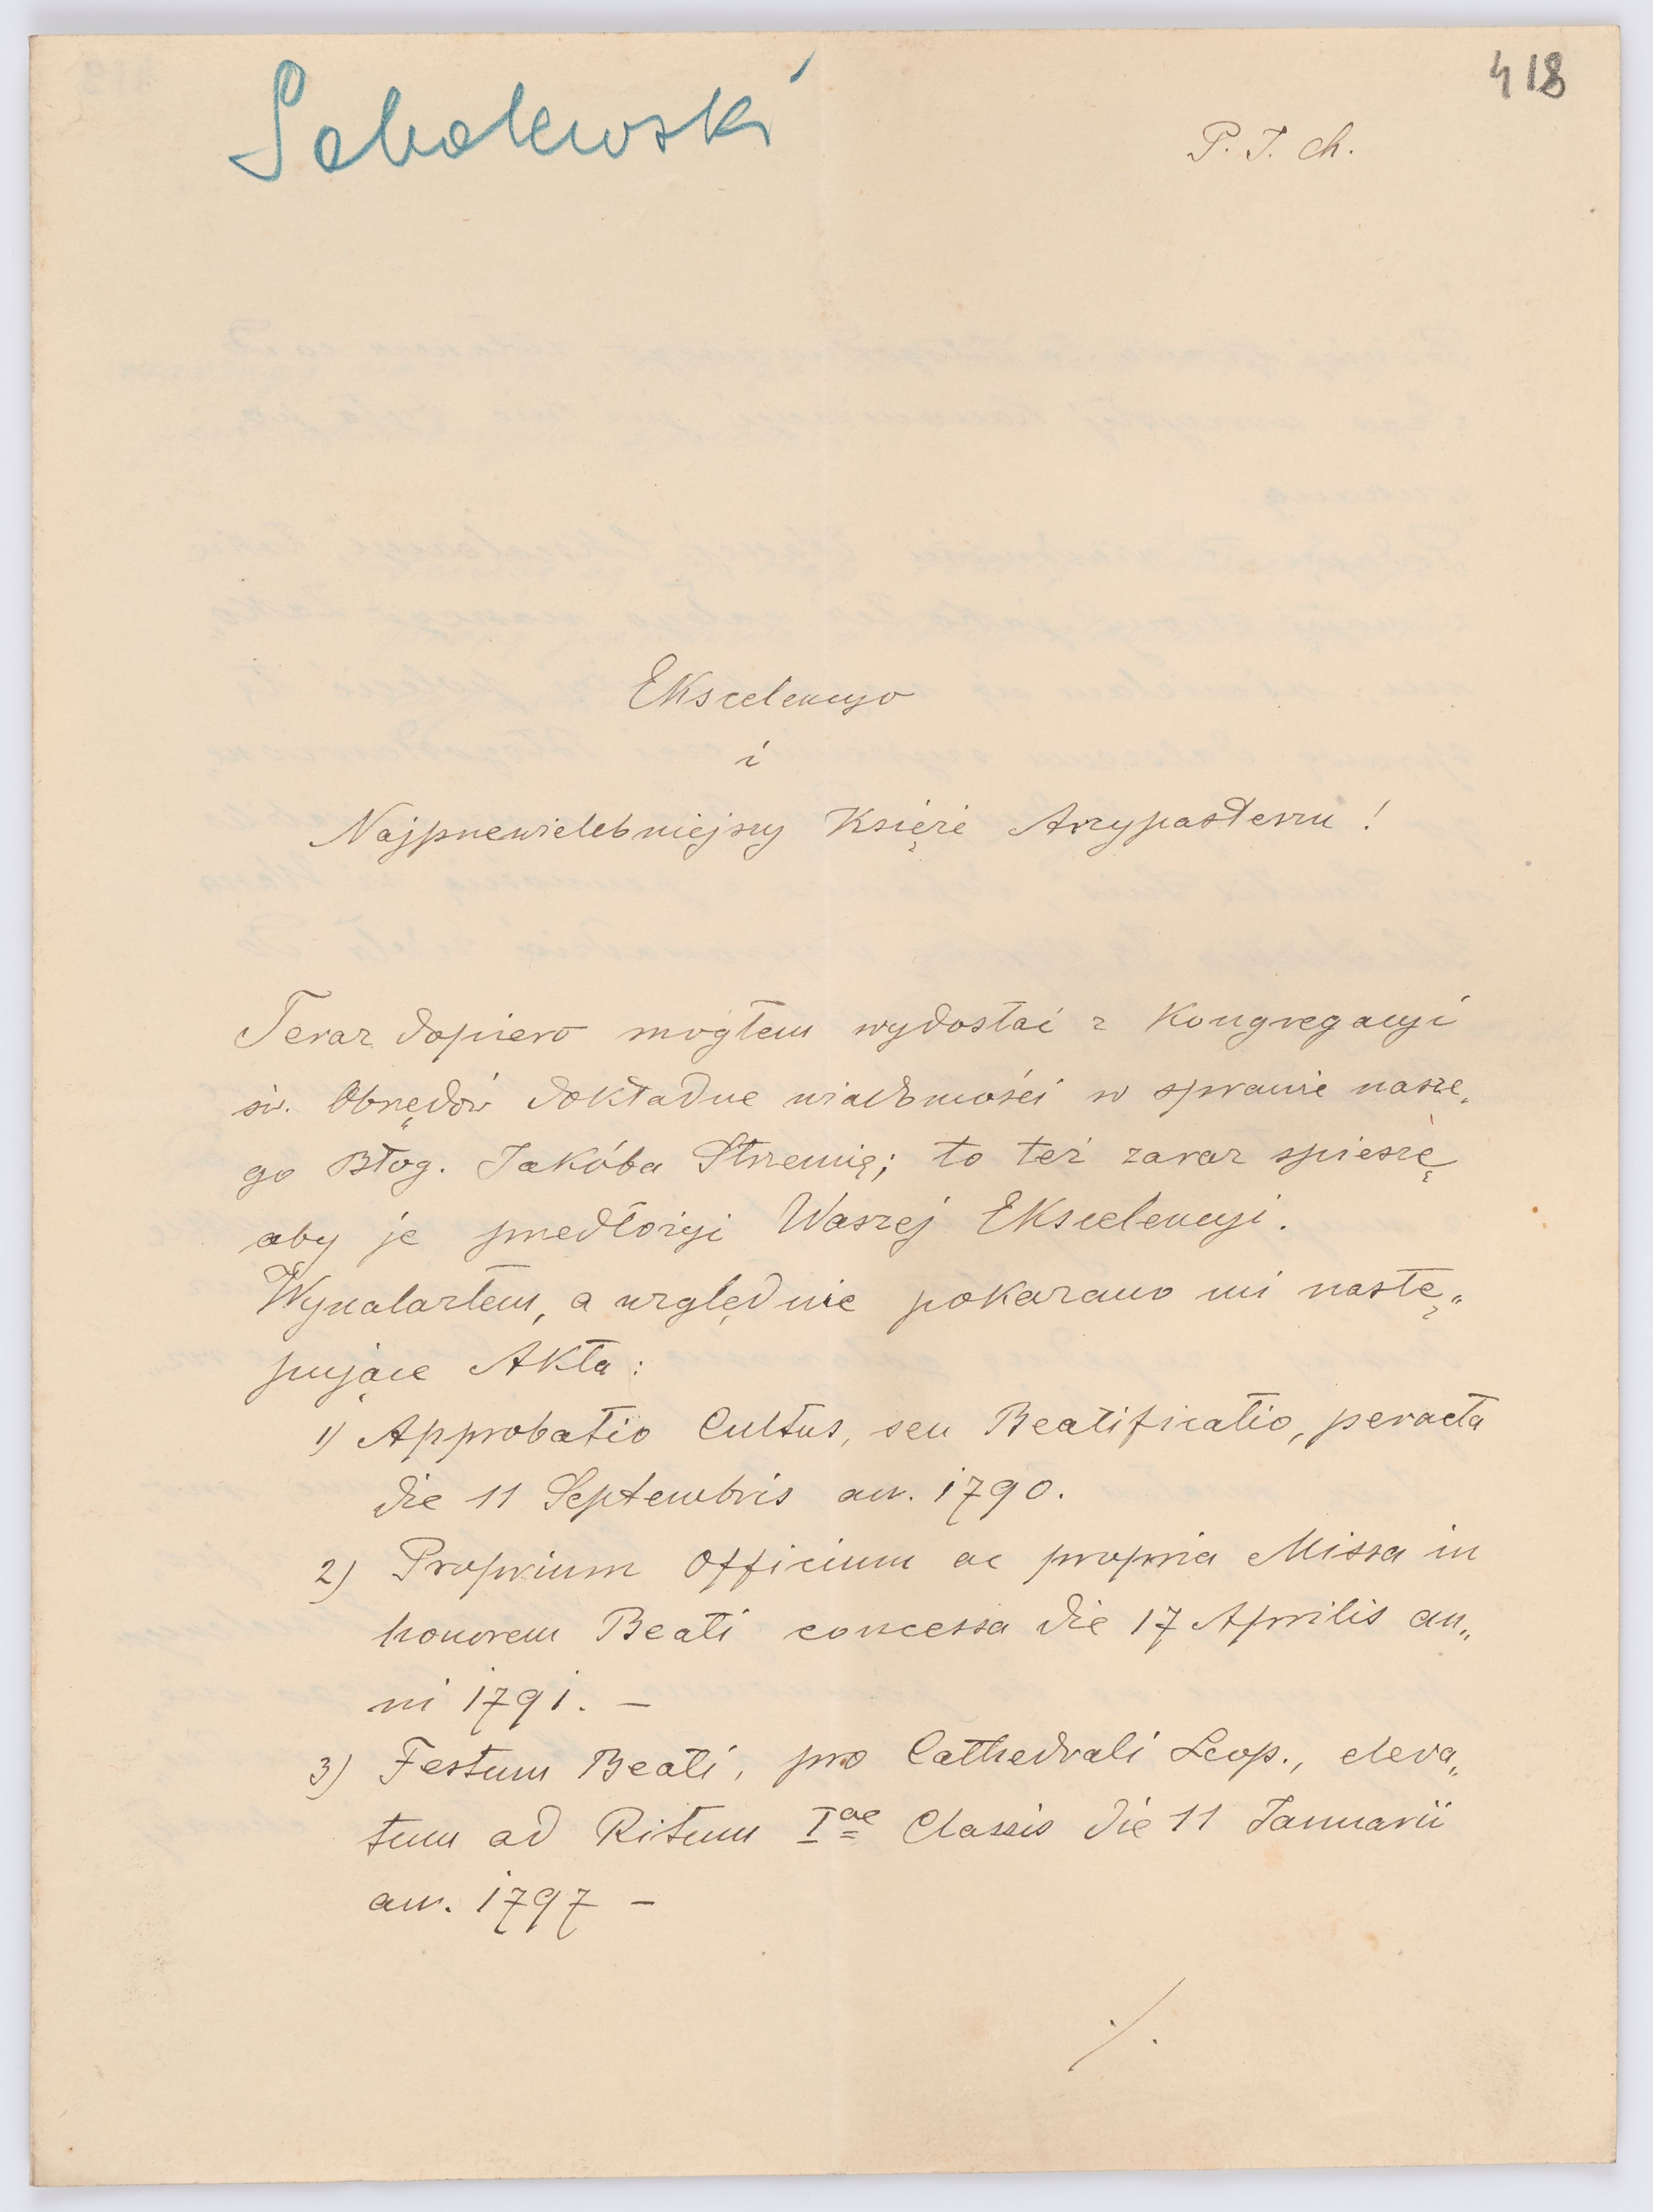 Sobolewski
418
P. J. Ch.
Ekscelencyo
i
Najprzewielebniejszy Księże Arcypasterzu!
Teraz dopiero mogłem wydostać z Kongregacyi
św. Obrzędów dokładne wiadomości w sprawie nasze„
go Błog. Jakóba Strzemię; to też zaraz spieszę
aby je przedłożyć Waszej Ekscelencyi.
Wynalazłem, a względnie pokazano mi nastę„
pujące Akta:
1) Approbatio Cultus, seu Beatificatio, peracta
die 11 Septembris an. 1790.
2) Proprium Officium ac propria Missa in
honorem Beati concessa die 17 Aprilis an„
ni 1791. —
3) Festum Beati, pro Cathedrali Leop., eleva„
tum ad Ritum Iae Classis die 11 Januarii
an. 1797 —
./.